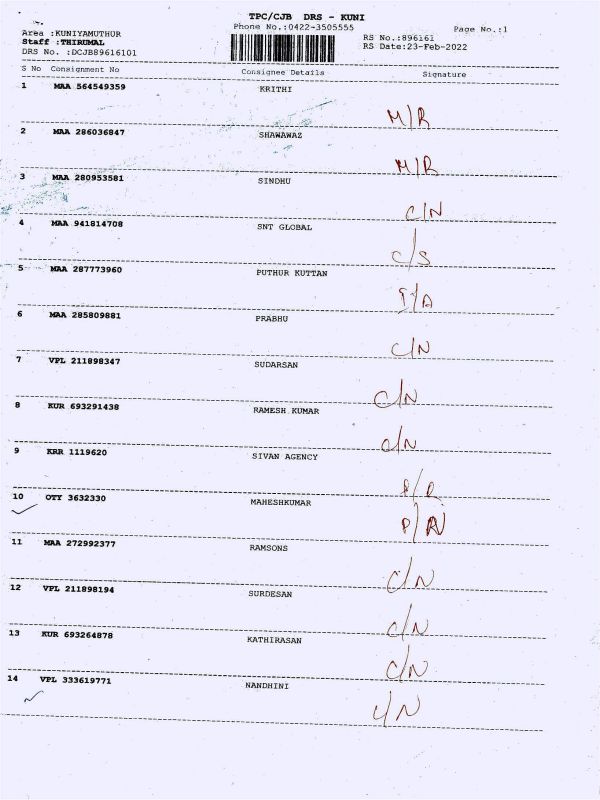 TPC/CJB DRS - KUNI
Phone No.:0422-3505555
Page No.:1
Area :KUNIYAMUTHUR
RS No.:896161
Staff :THIRUMAL
RS Date:23-Feb-2022
DRS No. :DCJB89616101
S No Consignment No Consignee Details Signature
1 MAA 564549359 KRITHI
M/R
2 MAA 286036847 SHAWAWAZ
M/R
3 MAA 280953581 SINDHU
C/N
4 MAA 941814708 SNT GLOBAL
C/S
5 MAA 287773960 PUTHUR KUTTAN
6 MAA 285809881 PRABHU
C/N
7 VPL 211898347 SUDARSAN
C/N
8 KUR 693291438 RAMESH KUMAR
C/N
9 KRR 1119620 SIVAN AGENCY
10 OTY 3632330 MAHESHKUMAR
11 MAA 272992377 RAMSONS
C/N
12 VPL 211898194 SURDESAN
C/N
13 KUR 693264878 KATHIRASAN
C/N
14 VPL 333619771 NANDHINI